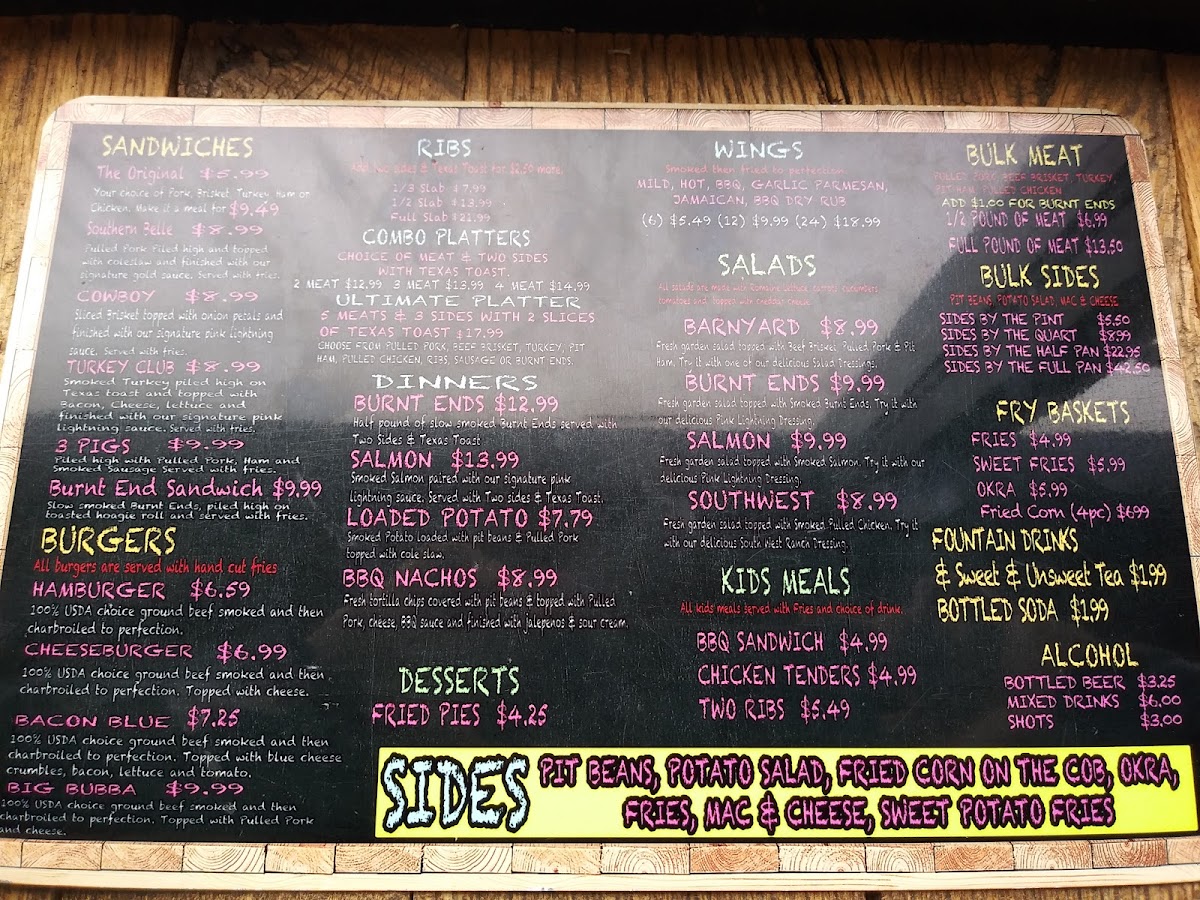 SANDWICHES
The Original $5.99
Your choice of Pork, Brisket, Turkey, Ham or
Chicken. Make it a meal for $9.49
Southern Belle $8.99
Pulled Pork Piled high and topped
with coleslaw and finished with our
signature gold sauce. Served with fries.
COWBOY $8.99
Sliced Brisket topped with onion petals and
finished with our signature pink lightning
sauce. Served with fries.
TURKEY CLUB $8.99
Smoked Turkey piled high on
Texas toast and topped with
Bacon, Cheese, lettuce and
finished with our signature pink
lightning sauce. Served with fries.
3 PIGS $9.99
Piled high with Pulled Pork, Ham and
Smoked Sausage Served with fries.
Burnt End Sandwich $9.99
Slow smoked Burnt Ends, piled high on
toasted hoagie roll and served with fries.
BURGERS
All burgers are served with hand cut fries
HAMBURGER $6.59
100% USDA choice ground beef smoked and then
charbroiled to perfection.
CHEESEBURGER $6.99
100% USDA choice ground beef smoked and then
charbroiled to perfection. Topped with cheese.
BACON BLUE $7.25
100% USDA choice ground beef smoked and then
charbroiled to perfection. Topped with blue cheese
crumbles, bacon, lettuce and tomato.
BIG BUBBA $9.99
100% USDA choice ground beef smoked and then
charbroiled to perfection. Topped with Pulled Pork
and cheese.
RIBS
Add two sides & Texas Toast for $2.50 more.
1/3 Slab $7.99
1/2 Slab $13.99
Full Slab $21.99
COMBO PLATTERS
CHOICE OF MEAT & TWO SIDES
WITH TEXAS TOAST.
2 MEAT $12.99 3 MEAT $13.99 4 MEAT $14.99
ULTIMATE PLATTER
5 MEATS & 3 SIDES WITH 2 SLICES
OF TEXAS TOAST $17.99
CHOOSE FROM PULLED PORK, BEEF BRISKET, TURKEY, PIT
HAM, PULLED CHICKEN, RIBS, SAUSAGE OR BURNT ENDS.
DINNERS
BURNT ENDS $12.99
Half pound of slow smoked Burnt Ends served with
Two Sides & Texas Toast
SALMON $13.99
Smoked Salmon paired with our signature pink
lightning sauce. Served with Two sides & Texas Toast.
LOADED POTATO $7.79
Smoked Potato loaded with pit beans & Pulled Pork
topped with cole slaw.
BBQ NACHOS $8.99
Fresh tortilla chips covered with pit beans & topped with Pulled
Pork, cheese, BBQ sauce and finished with jalepenos & sour cream.
DESSERTS
FRIED PIES $4.25
WINGS
Smoked then fried to perfection.
MILD, HOT, BBQ, GARLIC PARMESAN,
JAMAICAN, BBQ DRY RUB
(6) $5.49 (12) $9.99 (24) $18.99
SALADS
All salads are made with Romaine lettuce, carrots, cucumbers,
tomatoes and topped with cheddar cheese
BARNYARD $8.99
Fresh garden salad topped with Beef Brisket, Pulled Pork & Pit
Ham. Try it with one of our delicious Salad Dressings.
BURNT ENDS $9.99
Fresh garden salad topped with Smoked Burnt Ends. Try it with
our delicious Pink Lightning Dressing.
SALMON $9.99
Fresh garden salad topped with Smoked Salmon. Try it with our
delicious Pink Lightning Dressing.
SOUTHWEST $8.99
Fresh garden salad topped with Smoked Pulled Chicken. Try it
with our delicious South West Ranch Dressing.
KIDS MEALS
All kids meals served with Fries and choice of drink.
BBQ SANDWICH $4.99
CHICKEN TENDERS $4.99
TWO RIBS $5.49
BULK MEAT
PULLED PORK, BEEF BRISKET, TURKEY,
PIT HAM, PULLED CHICKEN
ADD $1.00 FOR BURNT ENDS
1/2 POUND OF MEAT $6.99
FULL POUND OF MEAT $13.50
BULK SIDES
PIT BEANS, POTATO SALAD, MAC & CHEESE
SIDES BY THE PINT $5.50
SIDES BY THE QUART $8.99
SIDES BY THE HALF PAN $22.95
SIDES BY THE FULL PAN $42.50
FRY BASKETS
FRIES $4.99
SWEET FRIES $5.99
OKRA $5.99
Fried Corn (4pc) $6.99
FOUNTAIN DRINKS
& Sweet & Unsweet Tea $1.99
BOTTLED SODA $1.99
ALCOHOL
BOTTLED BEER $3.25
MIXED DRINKS $6.00
SHOTS $3.00
SIDES PIT BEANS, POTATO SALAD, FRIED CORN ON THE COB, OKRA,
FRIES, MAC & CHEESE, SWEET POTATO FRIES